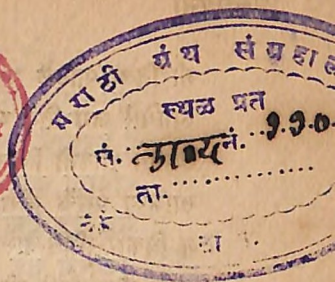 मराठी ग्रंथ संग्रहाल
स्थळ प्रत
सं. काव्य नं. ..११०
ता. ..............